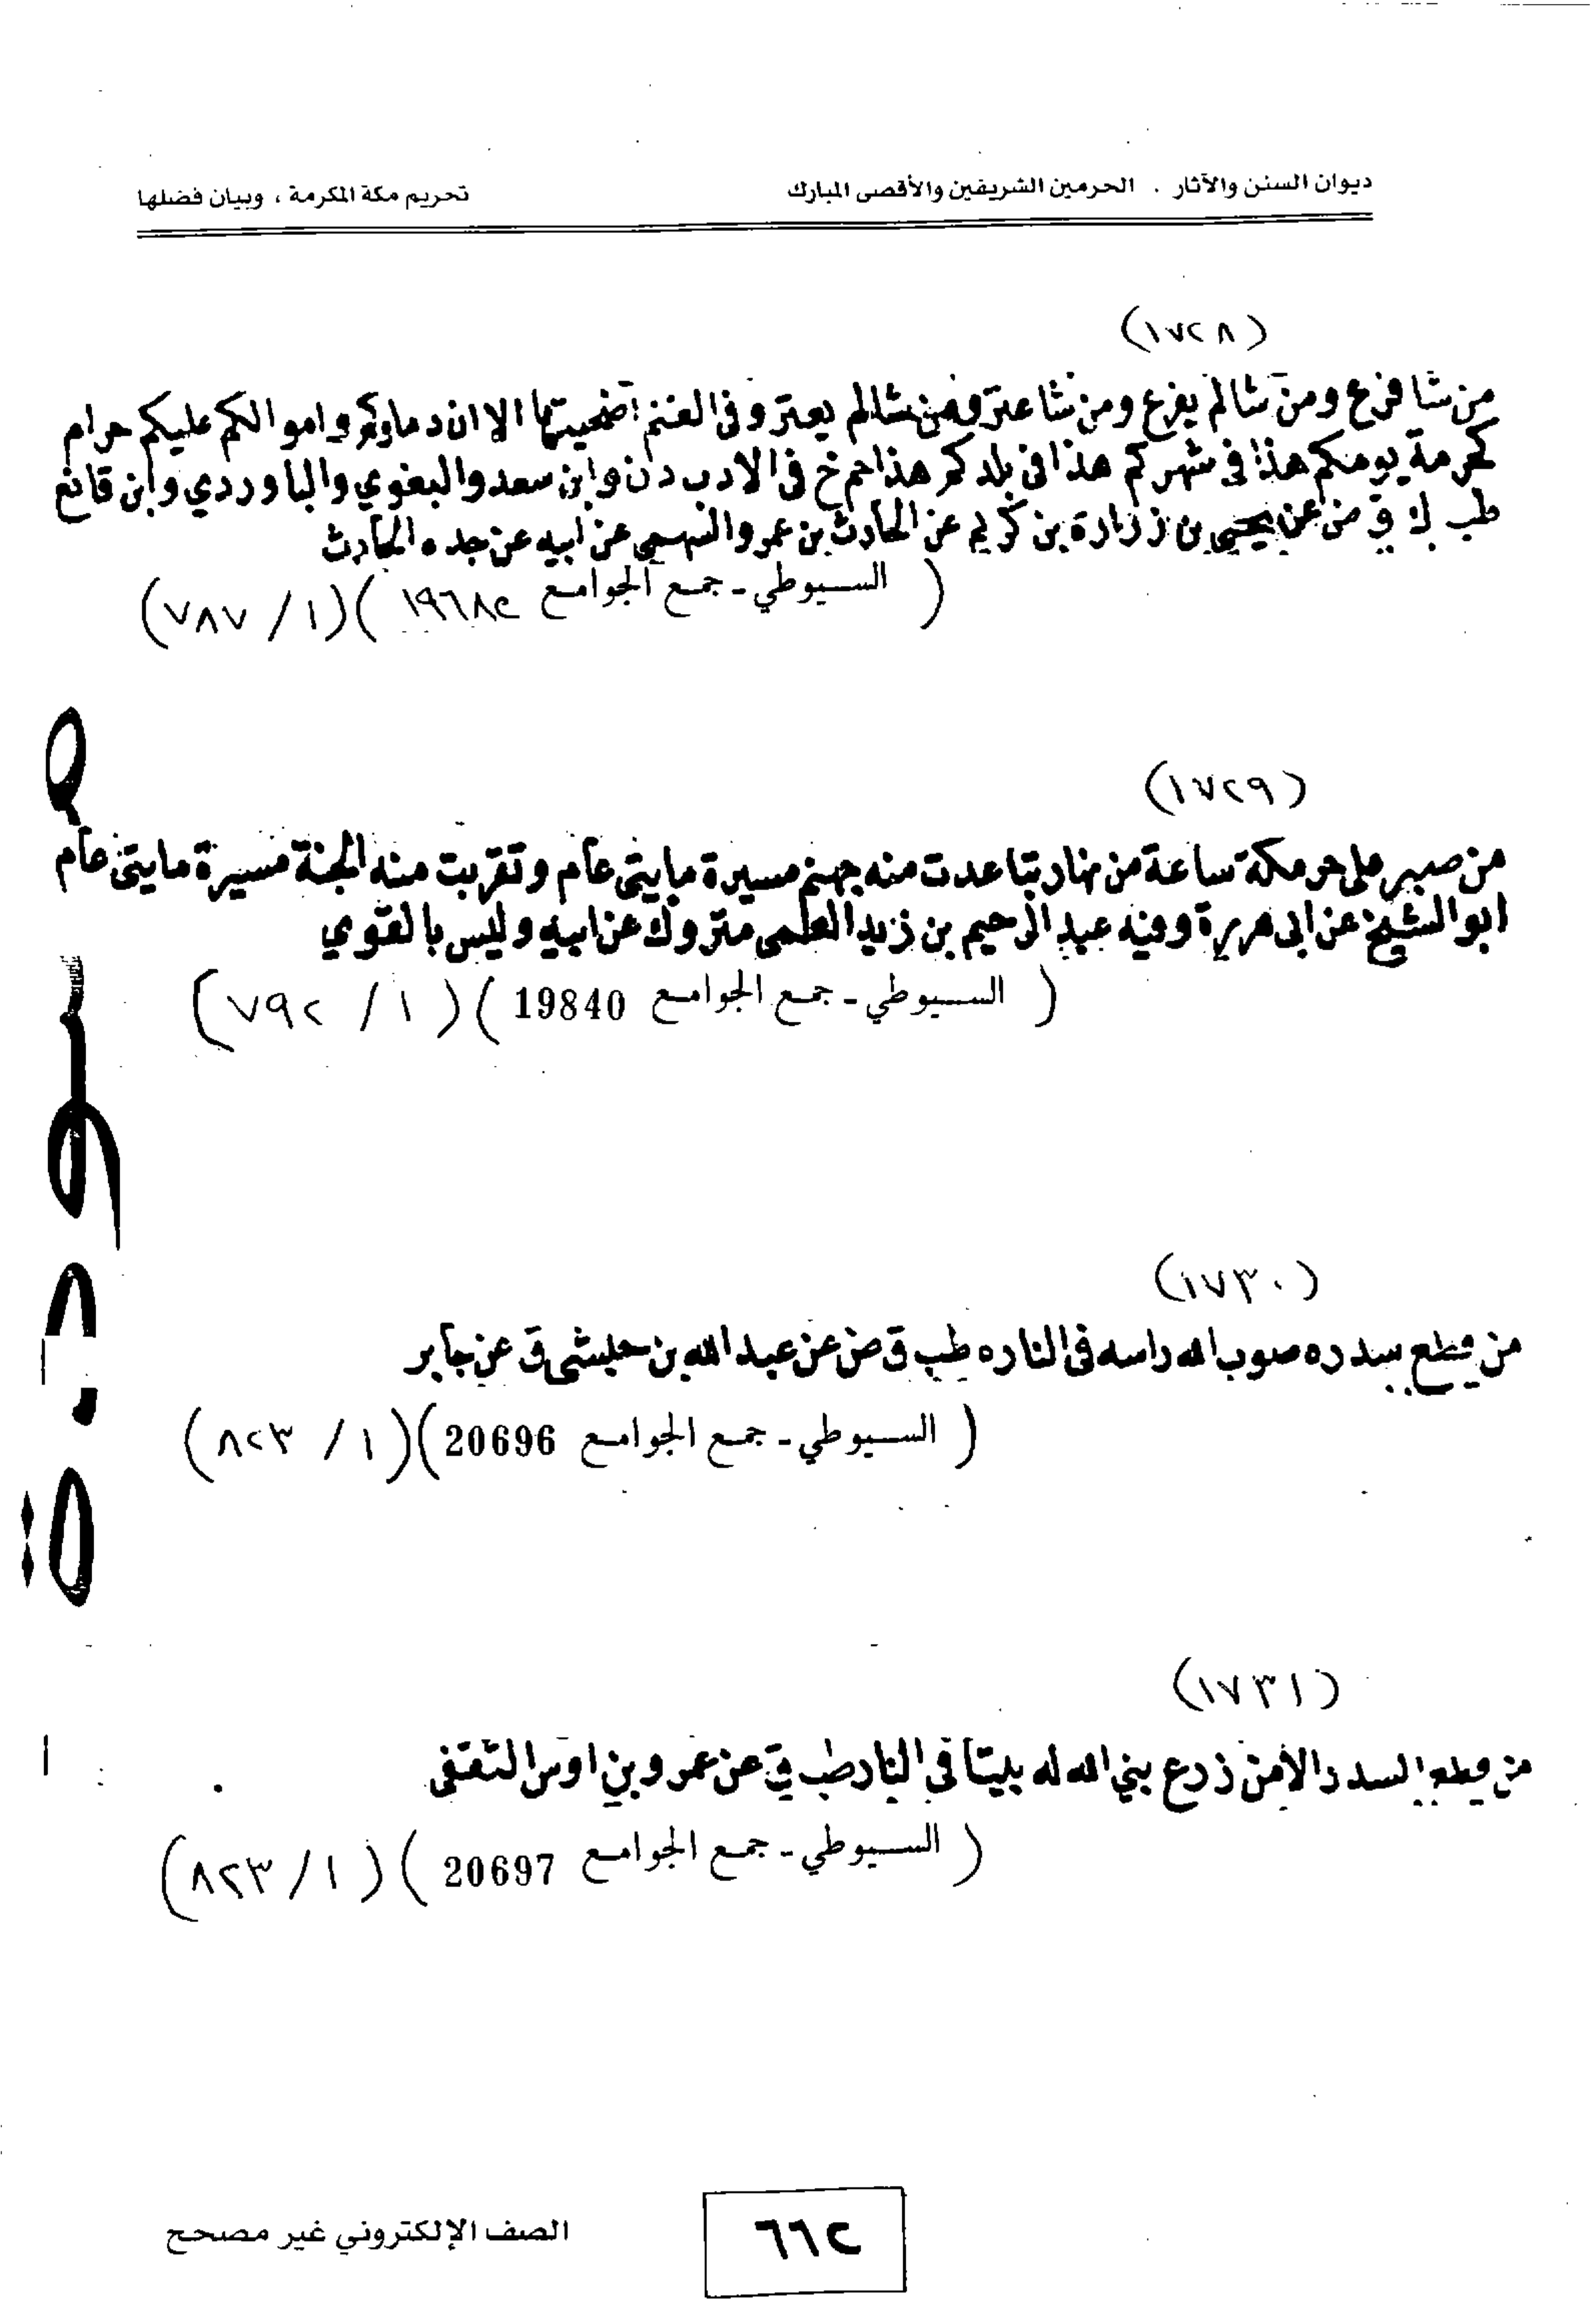 ديوان السنن والآثار . الحرمين الشريفين والأقصى المبارك
تحريم مكة المكرمة ، وبيان فضلها
(١٧٢٨)
من شا فرع ومن شالم يفرع ومن شا عتر ومن شالم يعتر وفى الغنم اضحيتها الا ان دماوكم واموالكم عليكم حرام
كحرمة يومكم هذا فى شهركم هذا فى بلدكم هذا حم خ فى الادب د ن وابن سعد والبغوي والباوردي وابن قانع
طب ك ق ض عن يحيى بن زرارة بن كريم عن الحارث بن عمرو السهمي عن ابيه عن جده الحارث
( السيوطي - جمع الجوامع ١٩٦٨٢ ) (١ / ٧٨٧)
(١٧٢٩)
من صبر على حر مكة ساعة من نهار تباعدت منه جهنم مسيرة مايتى عام وتقربت منه الجنة مسيرة مايتى عام
ابو الشيخ عن ابى هريرة وفيه عبد الرحيم بن زيد العمى متروك عن ابيه وليس بالقوي
( السيوطي - جمع الجوامع 19840 ) (١ / ٧٩٢)
(١٧٣٠)
من قطع سدره صوب الله راسه فى الناره طب ق ض عن عبد الله بن حبشى ق عن جابر
( السيوطي - جمع الجوامع 20696 ) (١ / ٨٢٣)
(١٧٣١)
من قطع السدر الا من زرع بني الله له بيتا فى النار طب ق عن عمرو بن اوس الثقفى
( السيوطي - جمع الجوامع 20697 ) (١ / ٨٢٣)
٦٦٢
الصف الإلكتروني غير مصحح